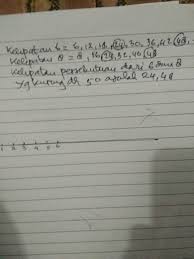 Kelipatan 6 = 6, 12, 18, 24, 30, 36, 42, 48,
Kelipatan 8 = 8, 16, 24, 32, 40, 48
Kelipatan persekutuan dari 6 dan 8
yg kurang dr 50 adalah 24, 48
1 2 3 4 5 6